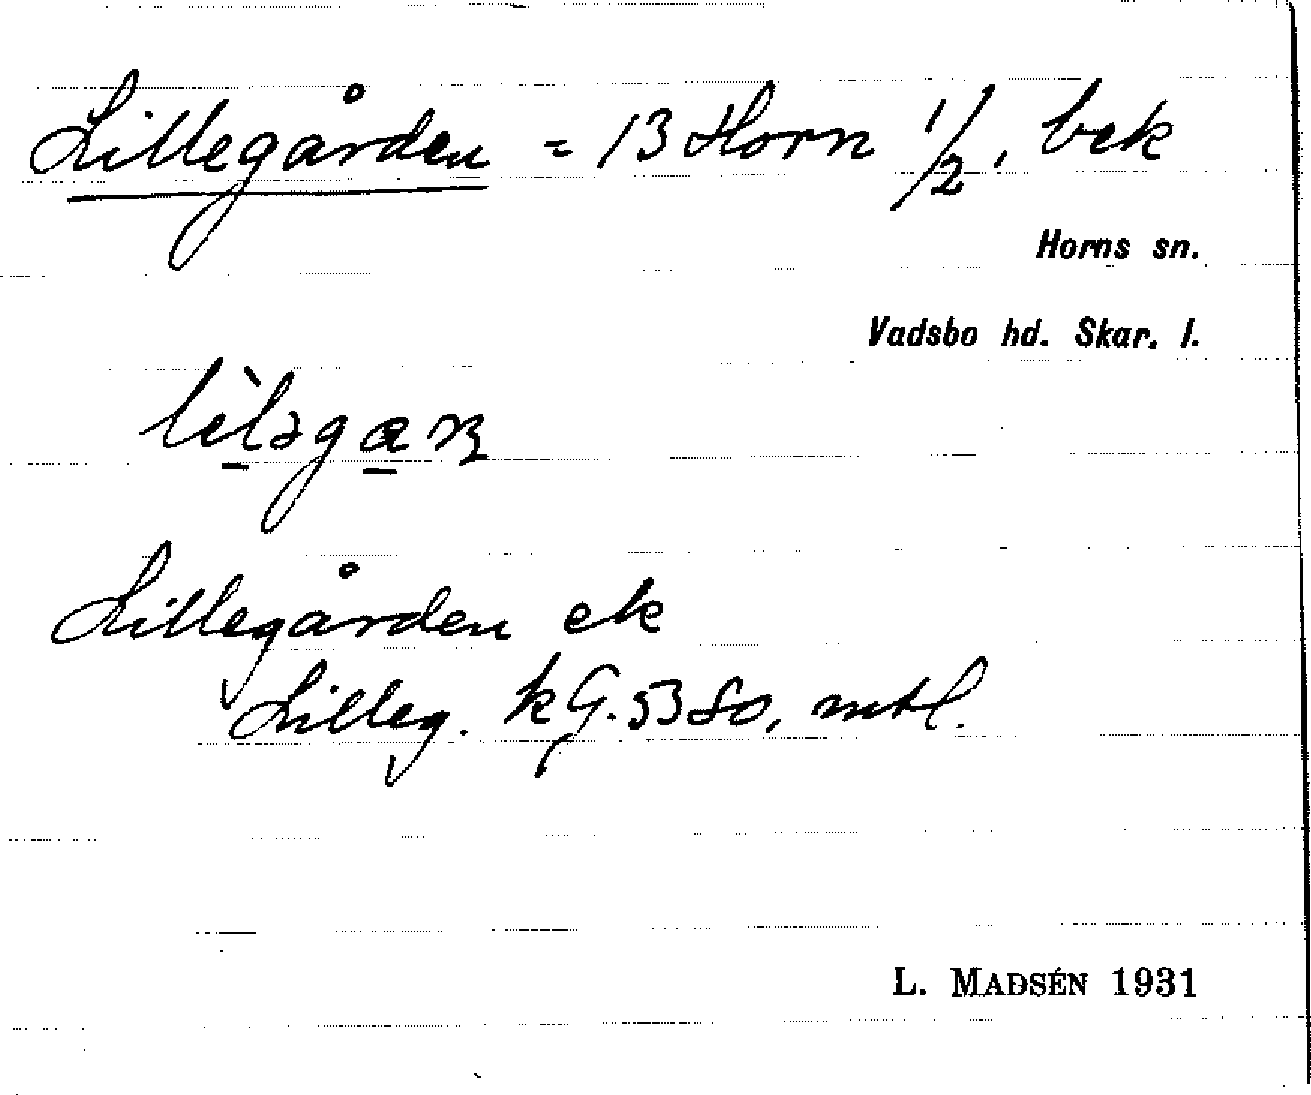 Lillegården = 13 Horn 1/2, bek
Horns sn.
Vadsbo hd. Skar. l.
Lillegården ek
Lilleg. kG. 5380, mtl.
L. MADSÉN 1931